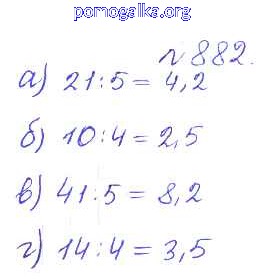 pomogalka.org
№ 882.
а) 21 : 5 = 4,2
б) 10 : 4 = 2,5
в) 41 : 5 = 8,2
г) 14 : 4 = 3,5